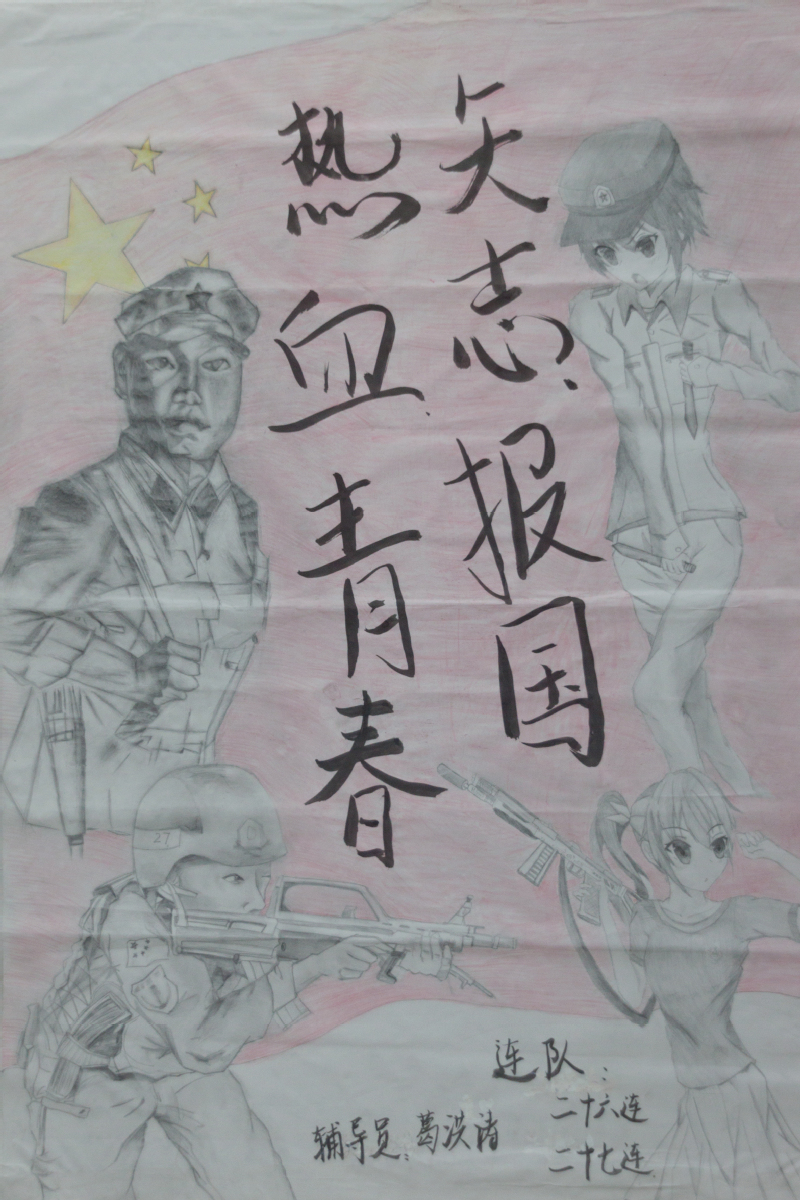 矢志报国
热血青春
27
连队:
二十六连
二十七连
辅导员:葛洪涛